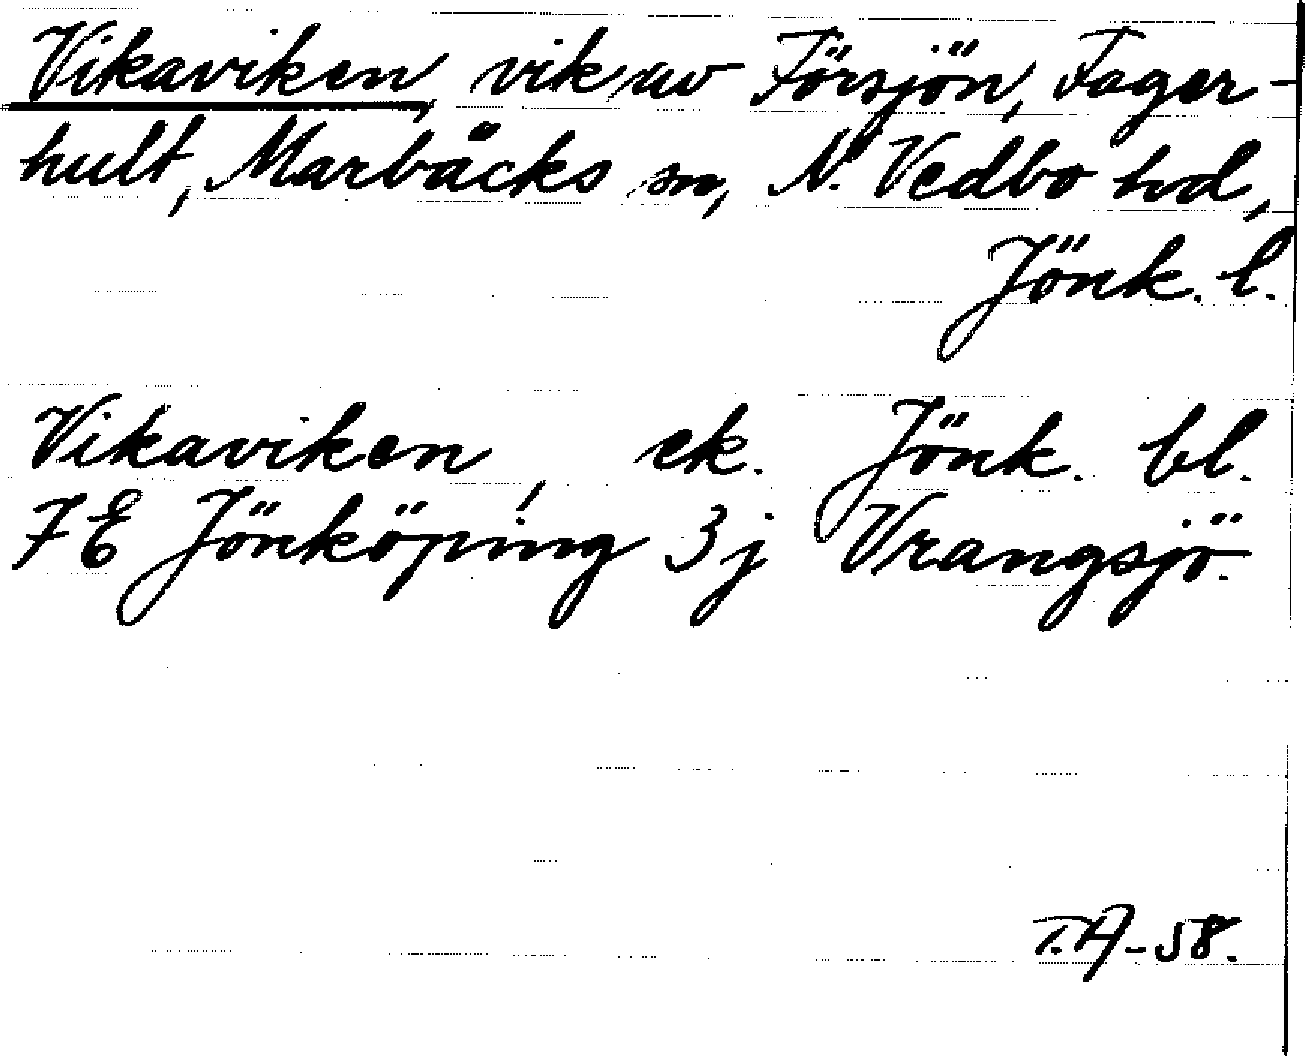 Vikaviken, vik av Försjön, Fager-
hult, Marbäcks sn, N. Vedbo hd,
Jönk. l.
Vikaviken, ek. Jönk. bl.
7E Jönköping 3j Vrangsjö.
T.A-58.